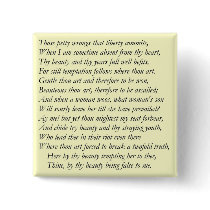 Those petty wrongs that liberty commits,
When I am sometime absent from thy heart,
Thy beauty and thy years full well befits,
For still temptation follows where thou art.
Gentle thou art and therefore to be won,
Beauteous thou art, therefore to be assailed;
And when a woman woos, what woman's son
Will sourly leave her till she have prevailed?
Ay me! but yet thou mightest my seat forbear,
And chide thy beauty and thy straying youth,
Who lead thee in their riot even there
Where thou art forced to break a twofold truth,
Hers by thy beauty tempting her to thee,
Thine, by thy beauty being false to me.